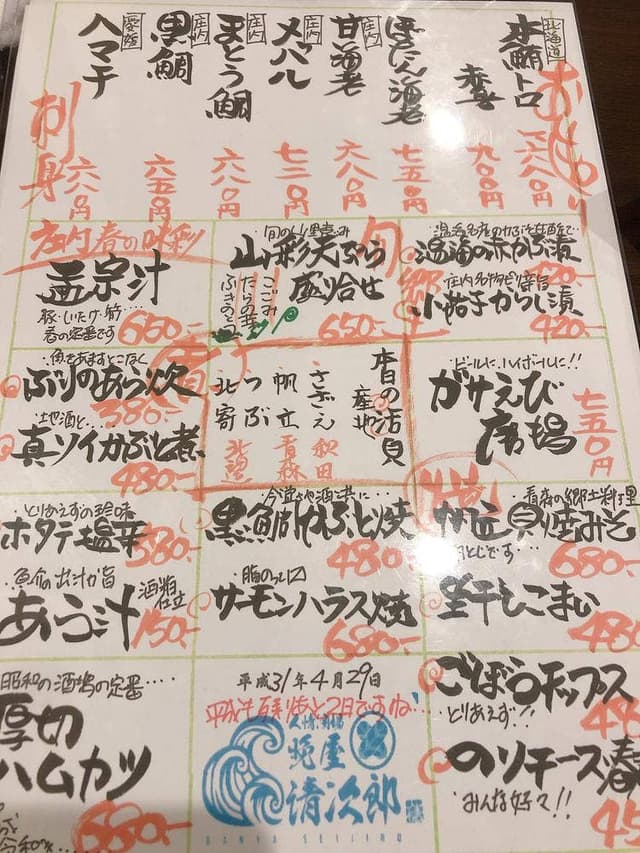 北海道
本鮪トロ
一六八〇円
赤身
九〇〇円
ぼたん海老
七五〇円
庄内
甘海老
六八〇円
庄内
メバル
七二〇円
庄内
まとう鯛
六八〇円
庄内
黒鯛
六五〇円
愛媛
ハマチ
六八〇円
刺身
庄内春の味彩
孟宗汁
豚・しいたけ・筍‥‥
春の定番です
660-
旬
山彩天ぷら
盛り合せ
こごみ
たらの芽
ふきのとう
650-
郷土
温海の赤かぶ漬
420-
小茄子からし漬
420-
・魚をあますとこなく
ぶりのあら炊
380-
・地酒と‥‥
真ソイかぶと煮
480-
本日の活貝
産地
さざえ
秋田
帆立
青森
つぶ
北寄
・ビールに、ハイボールに!!
ガサえび
唐揚
七五〇円
・とりあえずの珍味
ホタテ塩辛
380-
・魚介の出汁が旨
酒粕仕立
あら汁
150-
黒鯛かぶと焼
480-
・脂のったー
サーモンハラス焼
680-
焼
・青森の郷土料理
帆立貝焼みそ
玉とじです‥‥
680-
生干しこまい
昭和の酒場の定番‥‥
厚切
ハムカツ
680-
平成31年4月29日
平成も残すとこ2日ですね‥‥
晩屋
清次郎
BANYA SEIJIRO
ごぼうチップス
とりあえず!!
のりチーズ春
みんな好く!!